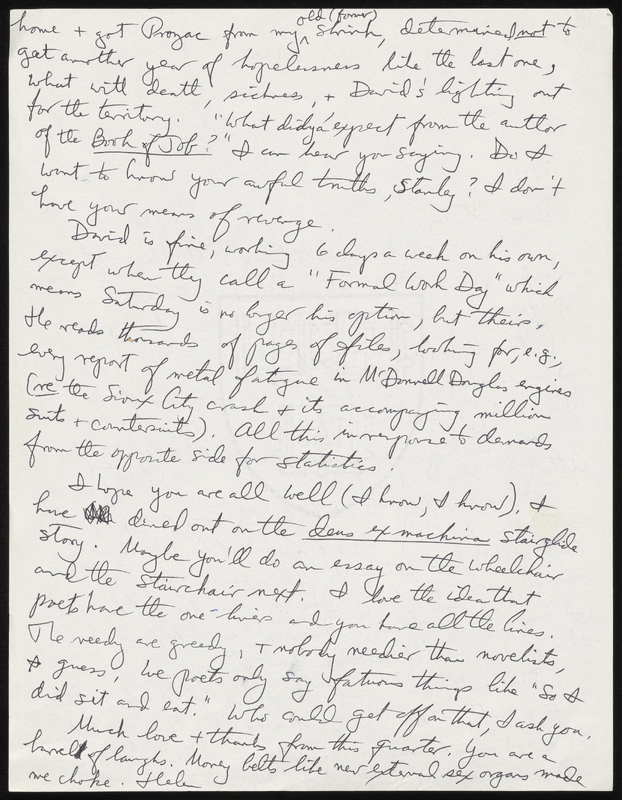 old (former)
home + got Prozac from my shrink, determined not to
get another year of hopelessness like the last one,
what with death, sickness, + David's lighting out
for the territory. "What didya expect from the author
of the Book of Job?" I can hear you saying. Do I
want to know your awful truths, Stanley? I don't
have your means of revenge.
David is fine, working 6 days a week on his own,
except when they call a "Formal Work Day" which
means Saturday is no longer his option, but theirs.
He reads thousands of pages of files, looking for, e.g.,
every report of metal fatigue in McDonnell Douglas engines
(re the Sioux City crash + its accompanying million
suits + countersuits). All this in response to demands
from the opposite side for statistics.
I hope you are all well (I know, I know). I
have dined out on the deus ex machina stairglide
story. Maybe you'll do an essay on the wheelchair
and the stairchair next. I love the idea that
poets have the one-liners and you have all the lines.
The needy are greedy, + nobody needier than novelists,
I guess. We poets only say fatuous things like "So I
did sit and eat." Who could get off on that, I ask you.
Much love + thanks from this quarter. You are a
barrel of laughs. Money belts like new external sex organs made
me choke. Helen